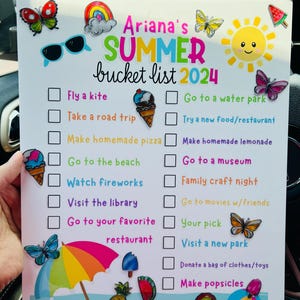 Ariana's
SUMMER
bucket list 2024
Fly a kite
Take a road trip
Make homemade pizza
Go to the beach
Watch fireworks
Visit the library
Go to your favorite
restaurant
Go to a water park
Try a new food/restaurant
Make homemade lemonade
Go to a museum
Family craft night
Go to movies w/friends
Your pick
Visit a new park
Donate a bag of clothes/toys
Make popsicles